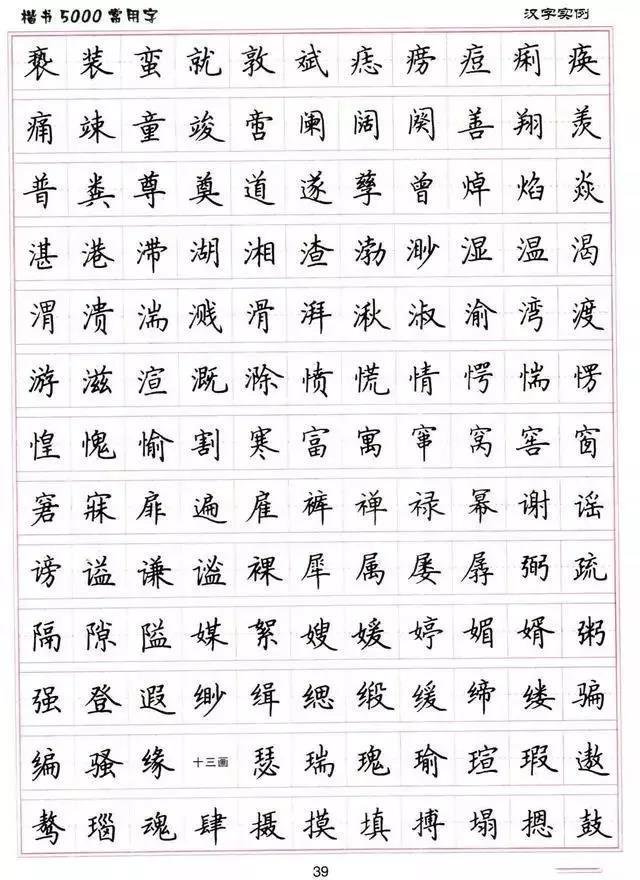 楷书5000常用字
汉字实例
亵 装 蛮 就 敦 斌 痣 痨 痘 痢 痪
痛 竦 童 竣 啻 阑 阔 阕 善 翔 羡
普 粪 尊 奠 道 遂 孳 曾 焯 焰 焱
湛 港 滞 湖 湘 渣 渤 渺 湿 温 渴
渭 溃 湍 溅 滑 湃 湫 淑 渝 湾 渡
游 滋 渲 溉 滁 愤 慌 情 愕 惴 愣
惶 愧 愉 割 寒 富 寓 窜 窝 窖 窗
窘 寐 扉 遍 雇 裤 禅 禄 幂 谢 谣
谤 谥 谦 谧 裸 犀 属 屡 孱 弼 疏
隔 隙 隘 媒 絮 嫂 媛 婷 媚 婿 粥
强 登 遐 缈 缉 缌 缎 缓 缔 缕 骗
编 骚 缘 十三画 瑟 瑞 瑰 瑜 瑄 瑕 遨
骜 瑙 魂 肆 摄 摸 填 搏 塌 摁 鼓
39